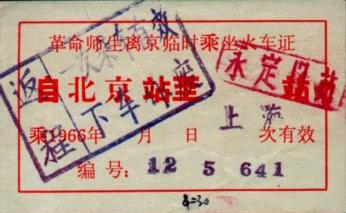 革命师生离京临时乘坐火车证
自北京站至
乘1966年 月 日 次有效
上海
返程
下车
永定门站
编号: 12 5 641
8=30